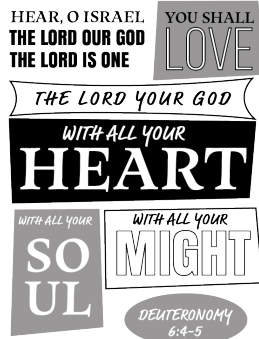 HEAR, O ISRAEL
THE LORD OUR GOD
THE LORD IS ONE
YOU SHALL
LOVE
THE LORD YOUR GOD
WITH ALL YOUR
HEART
WITH ALL YOUR
SO
UL
WITH ALL YOUR
MIGHT
DEUTERONOMY
6:4-5